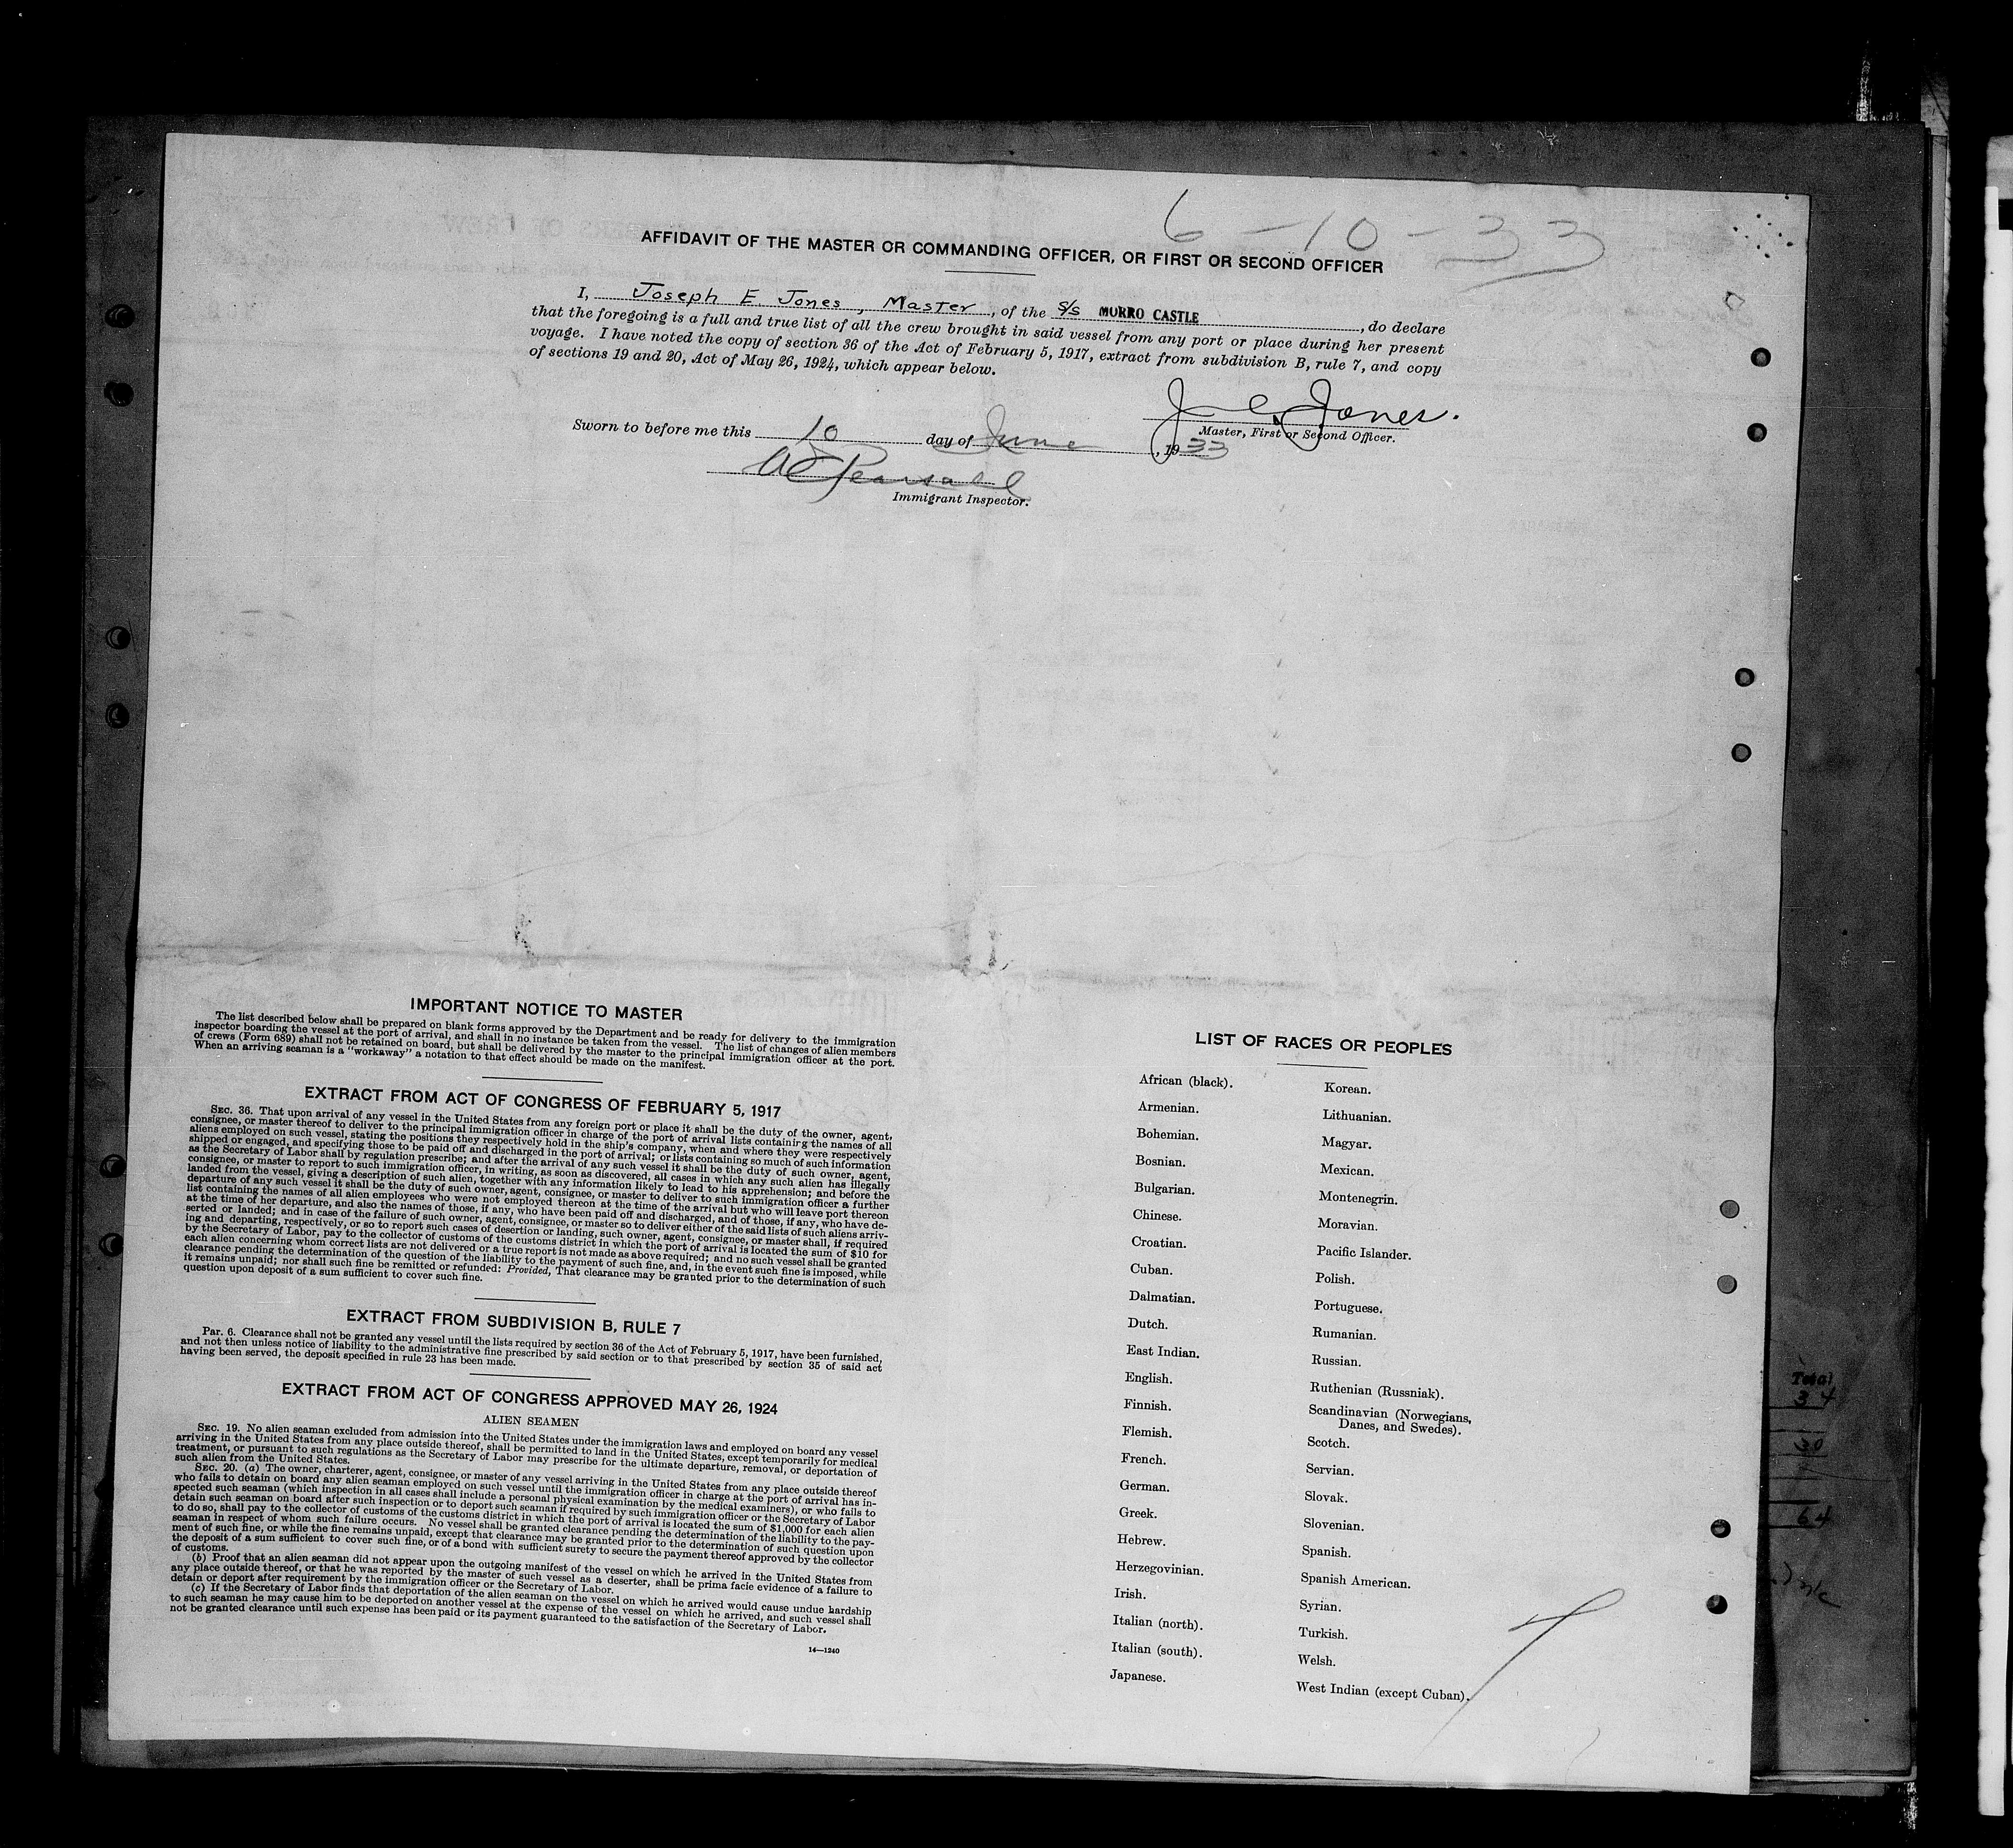 6-10-33
AFFIDAVIT OF THE MASTER OR COMMANDING OFFICER, OR FIRST OR SECOND OFFICER
I, Joseph E. Jones, Master, of the S/S MORRO CASTLE, do declare
that the foregoing is a full and true list of all the crew brought in said vessel from any port or place during her present
voyage. I have noted the copy of section 36 of the Act of February 5, 1917, extract from subdivision B, rule 7, and copy
of sections 19 and 20, Act of May 26, 1924, which appear below.
J. E. Jones.
Master, First or Second Officer.
Sworn to before me this 10 day of June, 1933
Pearsall
Immigrant Inspector.
IMPORTANT NOTICE TO MASTER
The list described below shall be prepared on blank forms approved by the Department and be ready for delivery to the immigration
inspector boarding the vessel at the port of arrival, and shall in no instance be taken from the vessel. The list of changes of alien members
of crews (Form 689) shall not be retained on board, but shall be delivered by the master to the principal immigration officer at the port.
When an arriving seaman is a "workaway" a notation to that effect should be made on the manifest.
EXTRACT FROM ACT OF CONGRESS OF FEBRUARY 5, 1917
SEC. 36. That upon arrival of any vessel in the United States from any foreign port or place it shall be the duty of the owner, agent,
consignee, or master thereof to deliver to the principal immigration officer in charge of the port of arrival lists containing the names of all
aliens employed on such vessel, stating the positions they respectively hold in the ship's company, when and where they were respectively
shipped or engaged, and specifying those to be paid off and discharged in the port of arrival; or lists containing so much of such information
as the Secretary of Labor shall by regulation prescribe; and after the arrival of any such vessel it shall be the duty of such owner, agent,
consignee, or master to report to such immigration officer, in writing, as soon as discovered, all cases in which any such alien has illegally
landed from the vessel, giving a description of such alien, together with any information likely to lead to his apprehension; and before the
departure of any such vessel it shall be the duty of such owner, agent, consignee, or master to deliver to such immigration officer a further
list containing the names of all alien employees who were not employed thereon at the time of the arrival but who will leave port thereon
at the time of her departure, and also the names of those, if any, who have been paid off and discharged, and of those, if any, who have de-
serted or landed; and in case of the failure of such owner, agent, consignee, or master so to deliver either of the said lists of such aliens arriv-
ing and departing, respectively, or so to report such cases of desertion or landing, such owner, agent, consignee, or master shall, if required
by the Secretary of Labor, pay to the collector of customs of the customs district in which the port of arrival is located the sum of $10 for
each alien concerning whom correct lists are not delivered or a true report is not made as above required; and no such vessel shall be granted
clearance pending the determination of the question of the liability to the payment of such fine, and, in the event such fine is imposed, while
it remains unpaid; nor shall such fine be remitted or refunded: Provided, That clearance may be granted prior to the determination of such
question upon deposit of a sum sufficient to cover such fine.
EXTRACT FROM SUBDIVISION B, RULE 7
Par. 6. Clearance shall not be granted any vessel until the lists required by section 36 of the Act of February 5, 1917, have been furnished,
and not then unless notice of liability to the administrative fine prescribed by said section or to that prescribed by section 35 of said act
having been served, the deposit specified in rule 23 has been made.
EXTRACT FROM ACT OF CONGRESS APPROVED MAY 26, 1924
ALIEN SEAMEN
SEC. 19. No alien seaman excluded from admission into the United States under the immigration laws and employed on board any vessel
arriving in the United States from any place outside thereof, shall be permitted to land in the United States, except temporarily for medical
treatment, or pursuant to such regulations as the Secretary of Labor may prescribe for the ultimate departure, removal, or deportation of
such alien from the United States.
SEC. 20. (a) The owner, charterer, agent, consignee, or master of any vessel arriving in the United States from any place outside thereof
who fails to detain on board any alien seaman employed on such vessel until the immigration officer in charge at the port of arrival has in-
spected such seaman (which inspection in all cases shall include a personal physical examination by the medical examiners), or who fails to
detain such seaman on board after such inspection or to deport such seaman if required by such immigration officer or the Secretary of Labor
to do so, shall pay to the collector of customs of the customs district in which the port of arrival is located the sum of $1,000 for each alien
seaman in respect of whom such failure occurs. No vessel shall be granted clearance pending the determination of the liability to the pay-
ment of such fine, or while the fine remains unpaid, except that clearance may be granted prior to the determination of such question upon
the deposit of a sum sufficient to cover such fine, or of a bond with sufficient surety to secure the payment thereof approved by the collector
of customs.
(b) Proof that an alien seaman did not appear upon the outgoing manifest of the vessel on which he arrived in the United States from
any place outside thereof, or that he was reported by the master of such vessel as a deserter, shall be prima facie evidence of a failure to
detain or deport after requirement by the immigration officer or the Secretary of Labor.
(c) If the Secretary of Labor finds that deportation of the alien seaman on the vessel on which he arrived would cause undue hardship
to such seaman he may cause him to be deported on another vessel at the expense of the vessel on which he arrived, and such vessel shall
not be granted clearance until such expense has been paid or its payment guaranteed to the satisfaction of the Secretary of Labor.
14—1240
LIST OF RACES OR PEOPLES
African (black).
Armenian.
Bohemian.
Bosnian.
Bulgarian.
Chinese.
Croatian.
Cuban.
Dalmatian.
Dutch.
East Indian.
English.
Finnish.
Flemish.
French.
German.
Greek.
Hebrew.
Herzegovinian.
Irish.
Italian (north).
Italian (south).
Japanese.
Korean.
Lithuanian.
Magyar.
Mexican.
Montenegrin.
Moravian.
Pacific Islander.
Polish.
Portuguese.
Rumanian.
Russian.
Ruthenian (Russniak).
Scandinavian (Norwegians,
Danes, and Swedes).
Scotch.
Servian.
Slovak.
Slovenian.
Spanish.
Spanish American.
Syrian.
Turkish.
Welsh.
West Indian (except Cuban).
Total
34
30
64